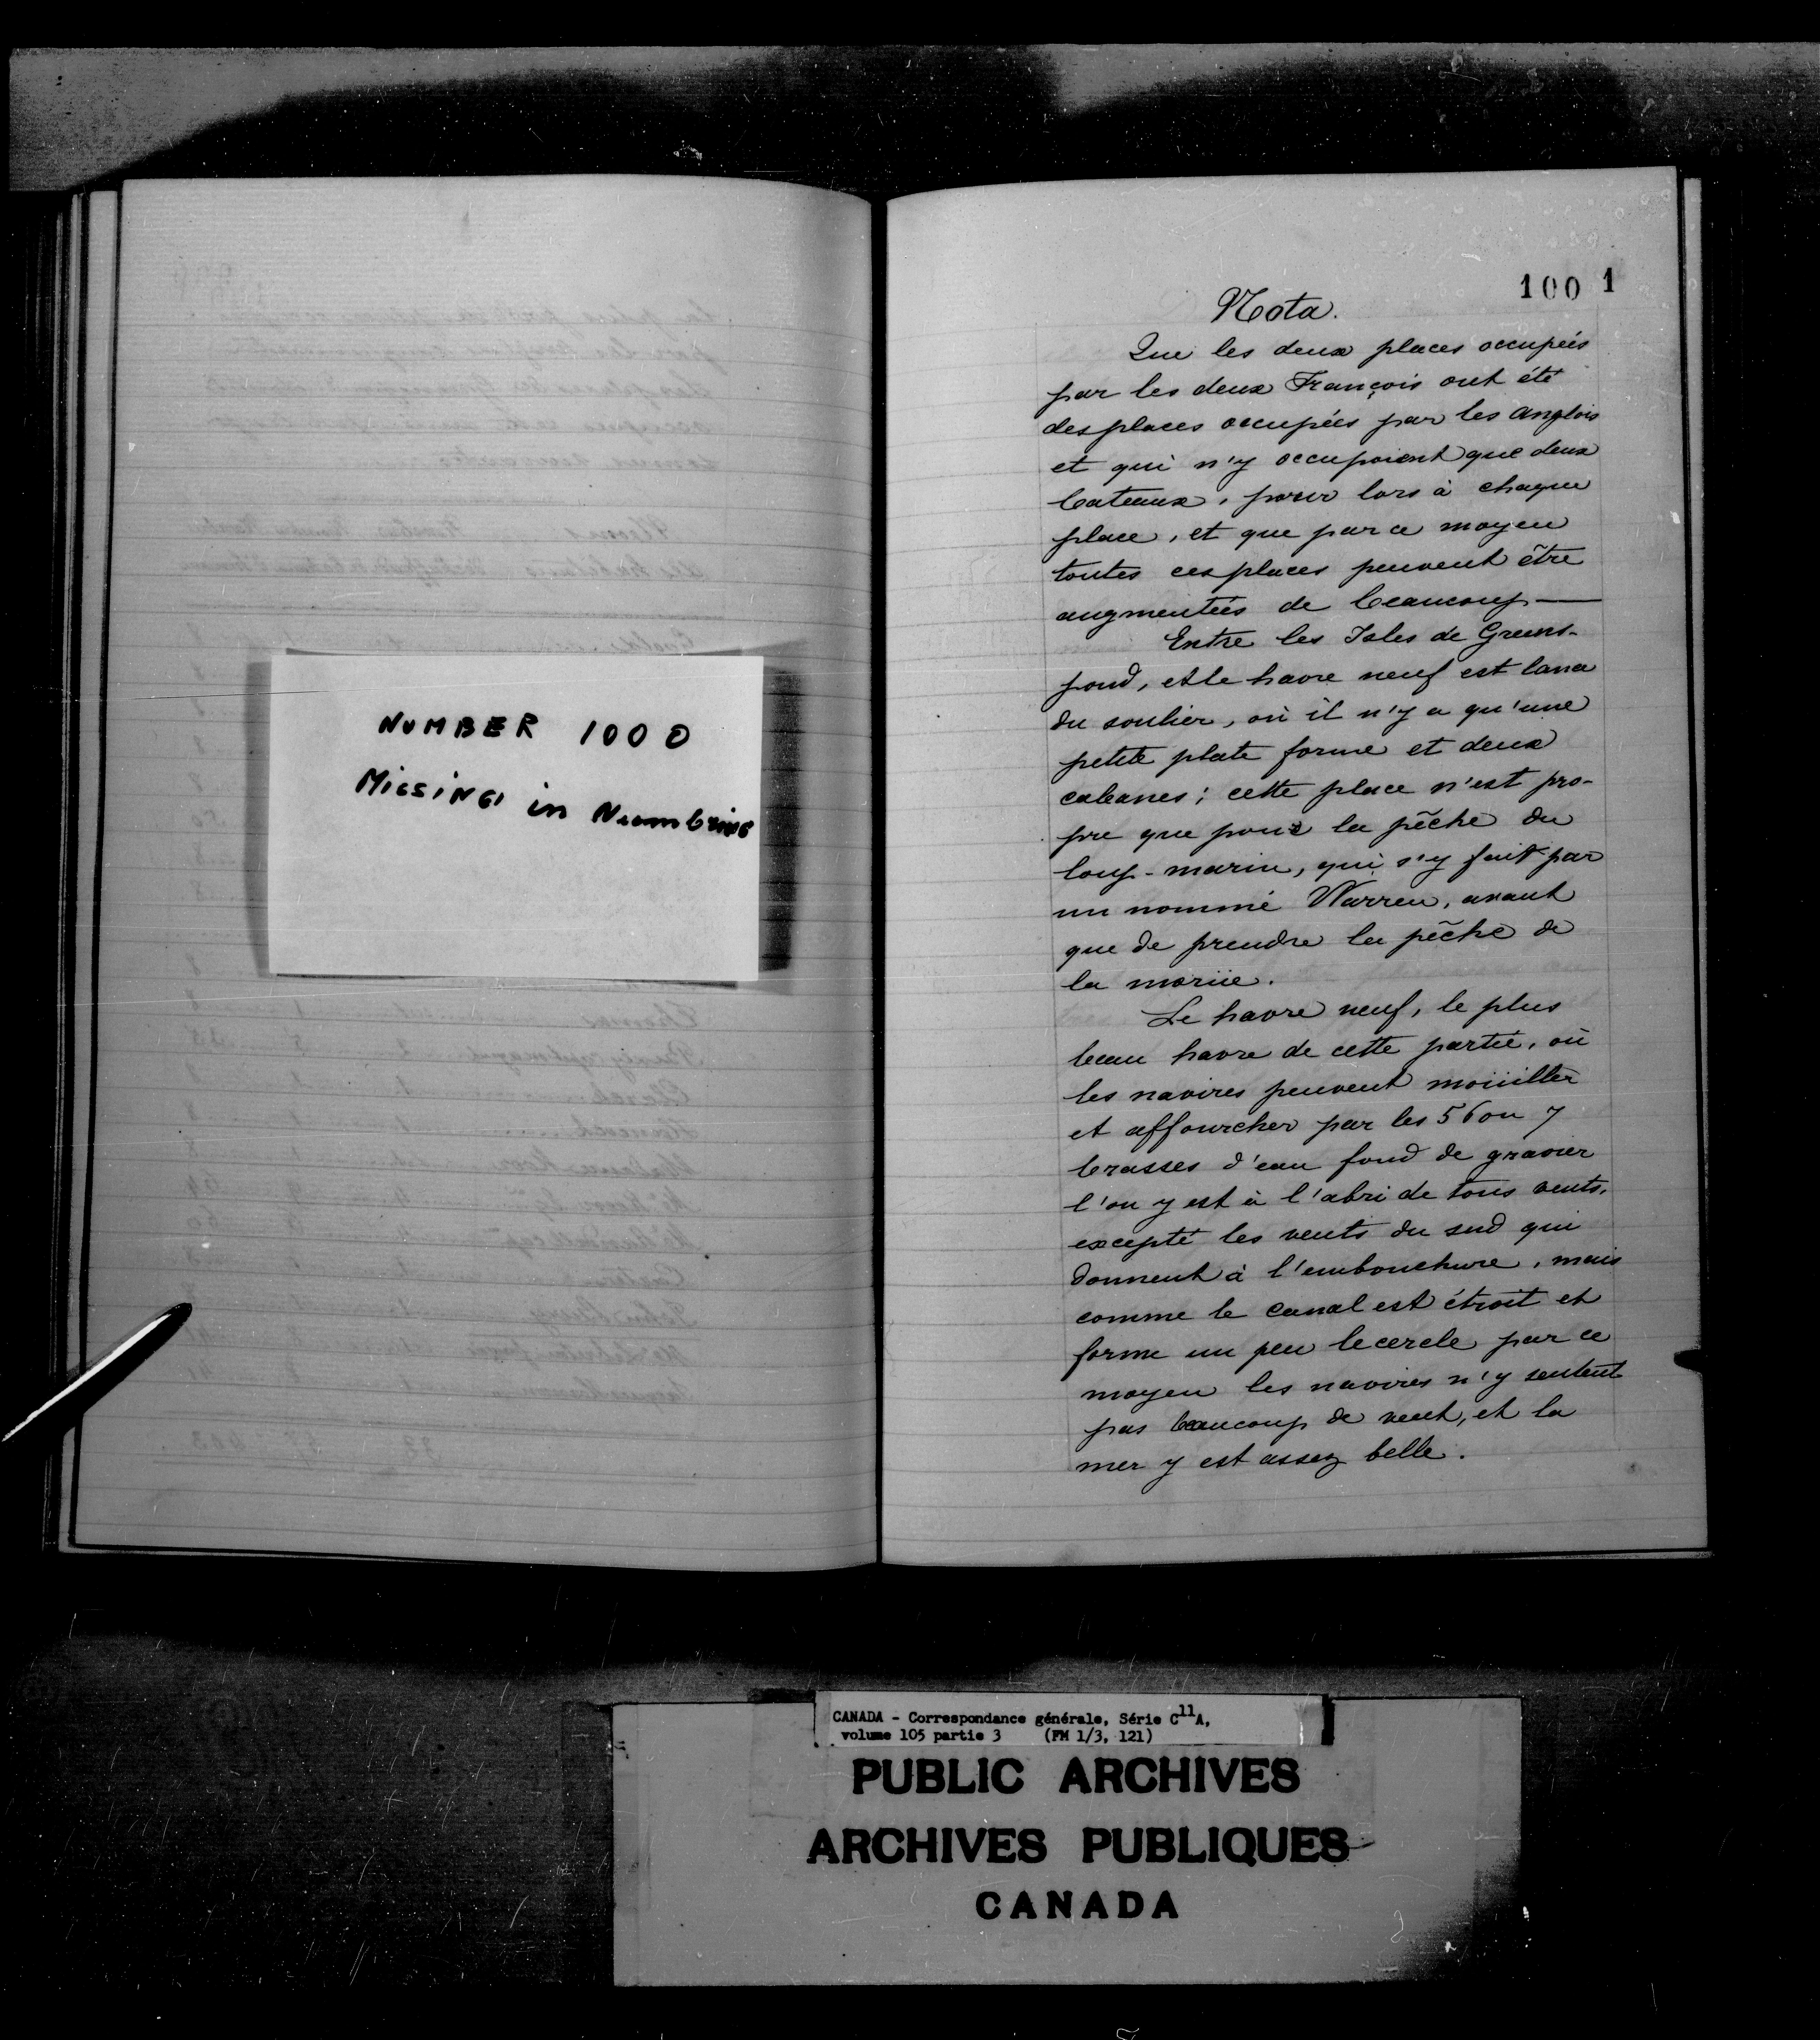 NUMBER 1000
MISSING in Numbering
1001
Nota.
Que les deux places occupées
par les deux François ont été
des places occupées par les anglois
et qui n'y occupoient que deux
bateaux, pour lors à chaque
place, et que par ce moyen
toutes ces places peuvent être
augmentées de beaucoup —
Entre les Isles de Greens-
pond, et le havre neuf est lance
du soulier, où il n'y a qu'une
petite plate forme et deux
cabanes; cette place n'est pro-
pre que pour la pêche du
loup-marin, qui s'y fait par
un nommé Warren, avant
que de prendre la pêche de
la moriie.
Le havre neuf, le plus
beau havre de cette partie, où
les navires peuvent moüiller
et affourcher par les 5 6 ou 7
brasses d'eau fond de gravier
l'on y est à l'abri de tous vents,
excepté les vents du sud qui
donnent à l'embouchure, mais
comme le canal est étroit et
forme un peu le cercle par ce
moyen les navires n'y sentent
pas beaucoup de vent, et la
mer y est assez belle.
CANADA - Correspondance générale, Série C11A,
volume 105 partie 3 (FM 1/3, 121)
PUBLIC ARCHIVES
ARCHIVES PUBLIQUES
CANADA